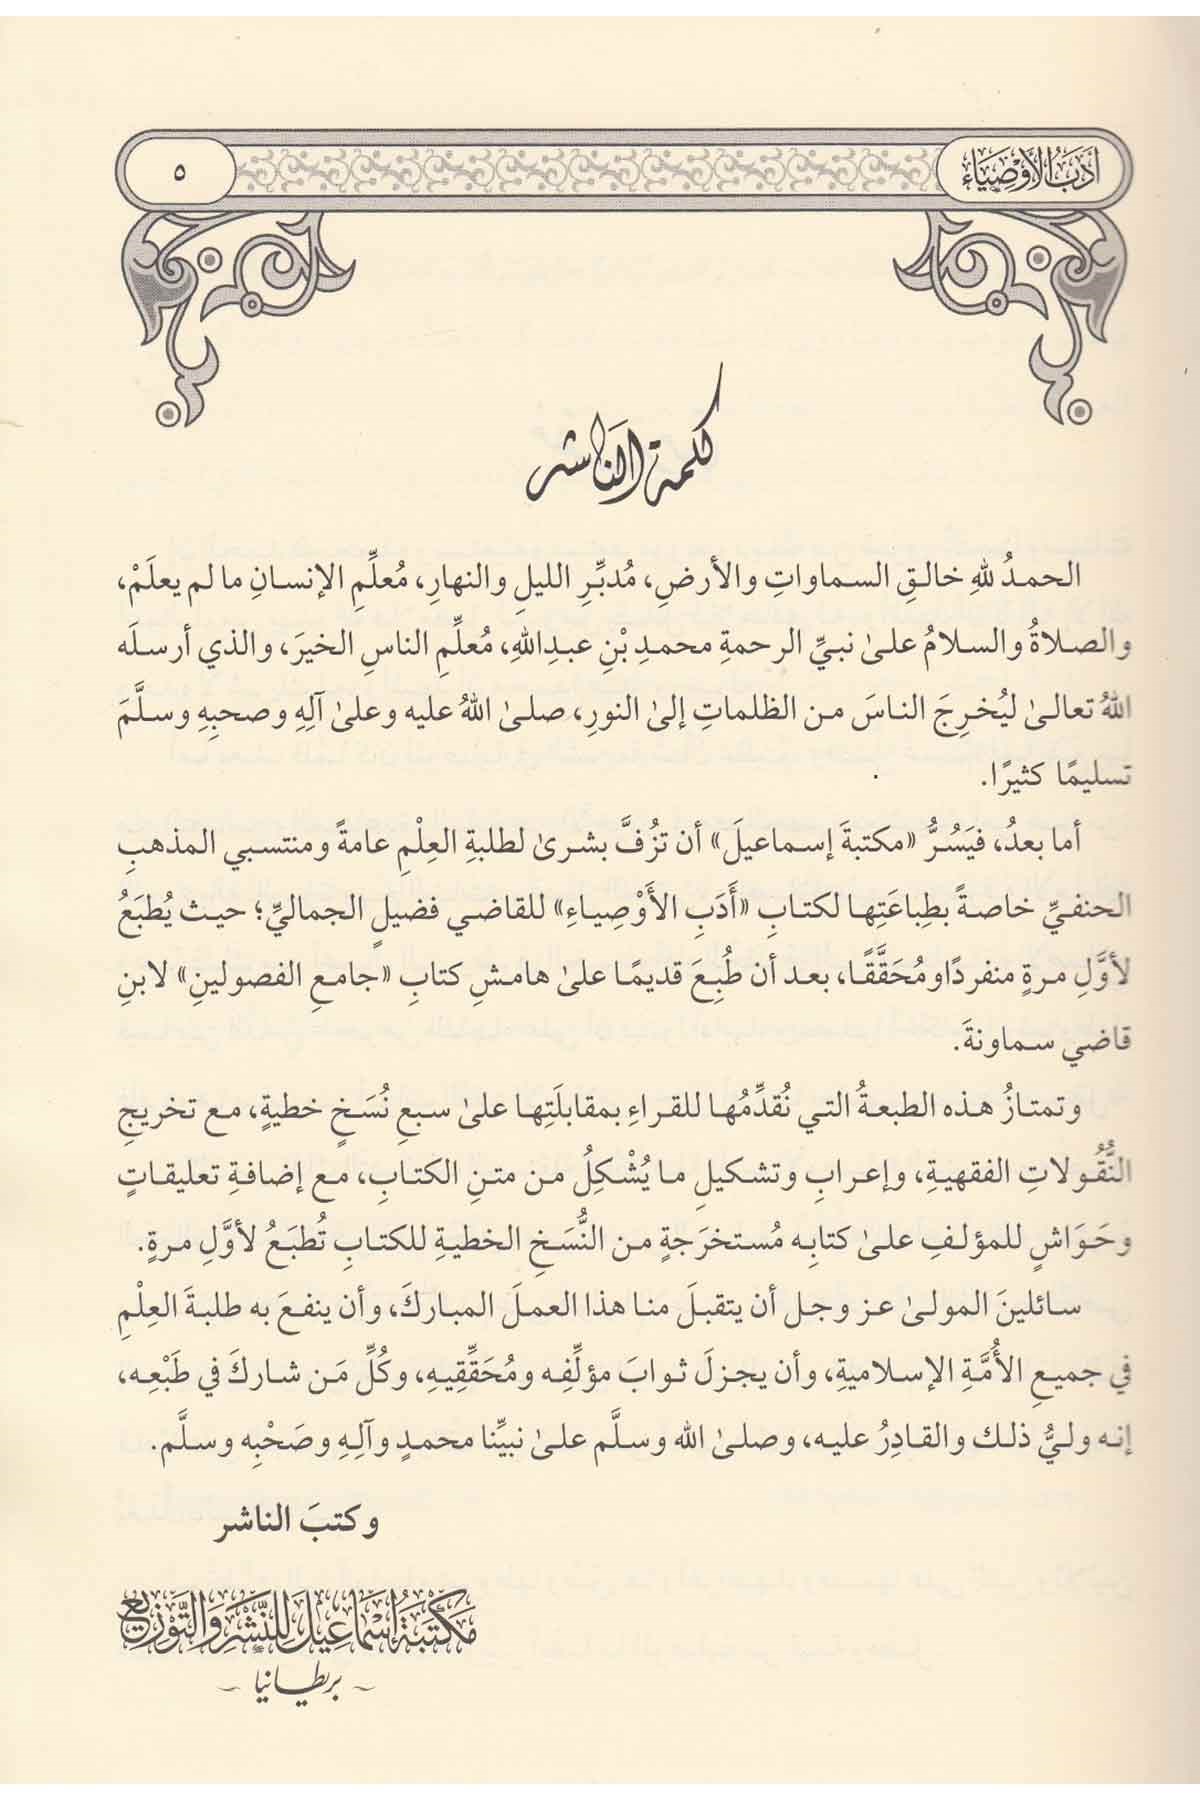 أدب الأوصياء
٥
كلمة الناشر
الحمدُ للهِ خالقِ السماواتِ والأرضِ، مُدبِّرِ الليلِ والنهارِ، مُعلِّمِ الإنسانِ ما لم يعلَمْ،
والصلاةُ والسلامُ علىٰ نبيِّ الرحمةِ محمدِ بْنِ عبدِاللهِ، مُعلِّمِ الناسِ الخيرَ، والذي أرسلَه
اللهُ تعالىٰ ليُخرِجَ الناسَ من الظلماتِ إلىٰ النورِ، صلىٰ اللهُ عليه وعلىٰ آلِهِ وصحبِهِ وسلَّمَ
تسليمًا كثيرًا.
أما بعدُ، فيَسُرُّ «مكتبةَ إسماعيلَ» أن تزُفَّ بشرىٰ لطلبةِ العِلْمِ عامةً ومنتسبي المذهبِ
الحنفيِّ خاصةً بطِباعَتِها لكتابِ «أَدَبِ الأَوْصِياءِ» للقاضي فضيلٍ الجماليِّ؛ حيث يُطبَعُ
لأوَّلِ مرةٍ منفردًا ومُحَقَّقًا، بعد أن طُبِعَ قديمًا علىٰ هامشِ كتابِ «جامعِ الفصولينِ» لابنِ
قاضي سماونةَ.
وتمتازُ هذه الطبعةُ التي نُقدِّمُها للقراءِ بمقابلَتِها علىٰ سبعِ نُسَخٍ خطيةٍ، مع تخريجِ
النُّقُولاتِ الفقهيةِ، وإعرابِ وتشكيلِ ما يُشْكِلُ من متنِ الكتابِ، مع إضافةِ تعليقاتٍ
وحَوَاشٍ للمؤلفِ علىٰ كتابِه مُستخرَجةٍ من النُّسَخِ الخطيةِ للكتابِ تُطبَعُ لأوَّلِ مرةٍ.
سائلينَ المولىٰ عز وجل أن يتقبلَ منا هذا العملَ المباركَ، وأن ينفعَ به طلبةَ العِلْمِ
في جميعِ الأُمَّةِ الإسلاميةِ، وأن يجزلَ ثوابَ مؤلِّفِه ومُحَقِّقِيهِ، وكُلِّ مَن شاركَ في طَبْعِه،
إنه وليُّ ذلك والقادِرُ عليه، وصلىٰ الله وسلَّم علىٰ نبيِّنا محمدٍ وآلِهِ وصَحْبِه وسلَّم.
وكتبَ الناشر
مكتبة إسماعيل للنشر والتوزيع
- بريطانيا -